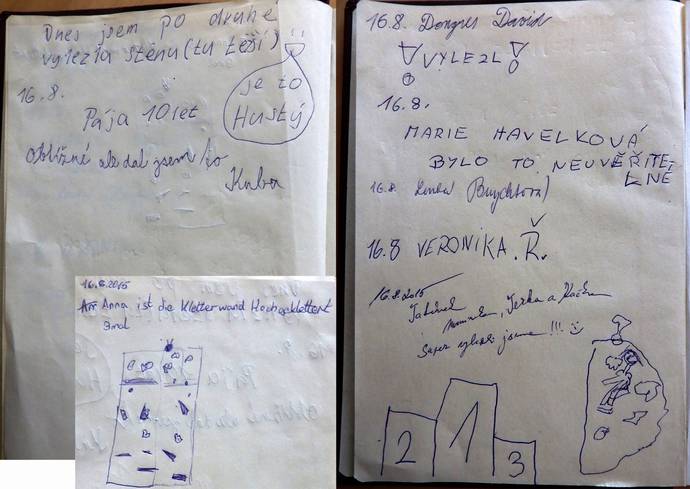 Dnes jsem PO druhé
vylezla stěnu (tu těší)
16.8.
je to
Hustý
Pája 10let
Obtížné ale dal jsem to
Kuba
16.8.2015
Anna ist die Kletterwand Hochgeklettert
3mal
16.8. Dongres David
! VYLEZL !
16.8.
MARIE HAVELKOVÁ
BYLO TO NEUVĚŘITE
LNĚ
16.8. Lenka
16.8 VERONIKA.Ř.
16.8.2015
Jirka a
Super vylezli jsme!!!
2 1 3